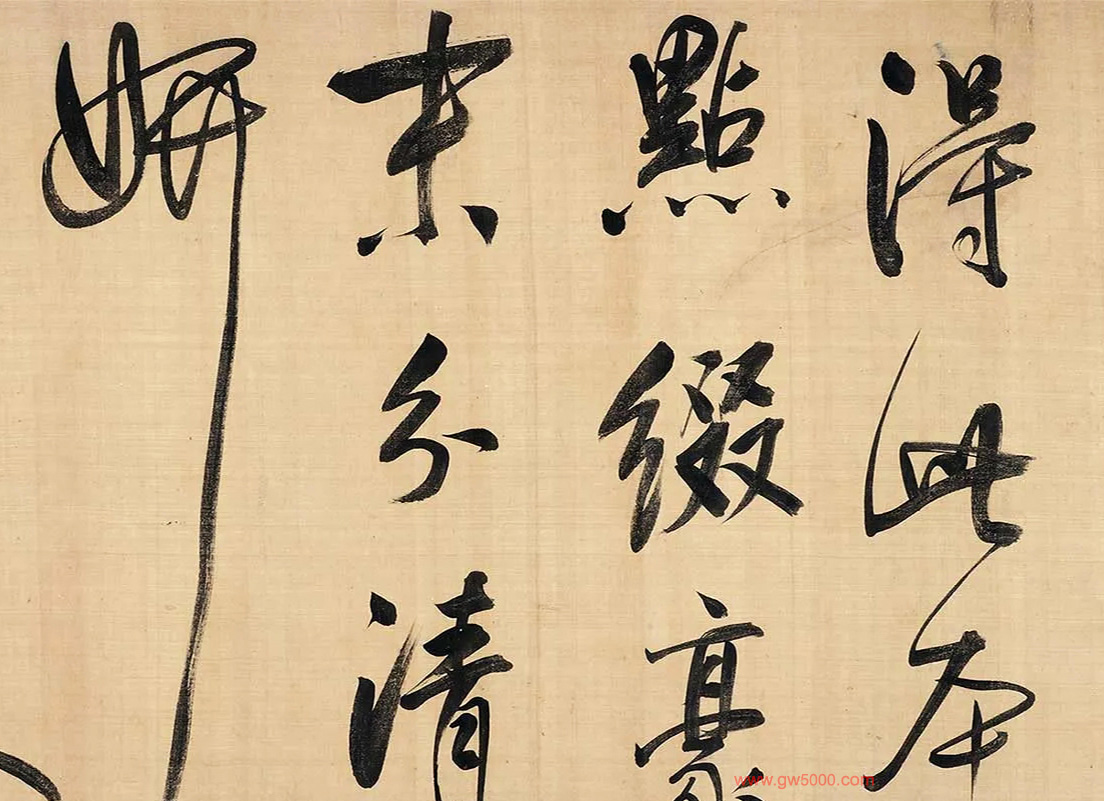 得此本
點綴豪
末分清
妍
www.gw5000.com